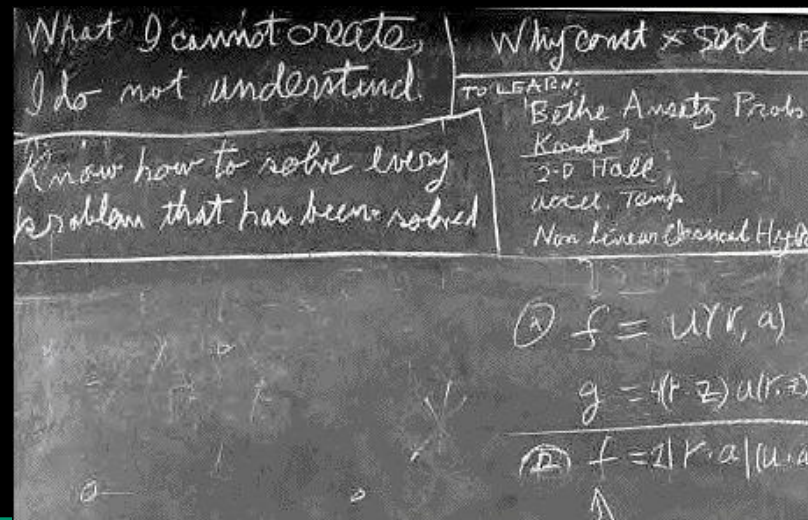 What I cannot create,
I do not understand.
Know how to solve every
problem that has been solved
Why const × sort
TO LEARN:
Bethe Ansatz Probs
Kondo
2-D Hall
accel. Temp
Non Linear Classical Hydro
f = u(r, a)
g = 4(r·z) u(r, z)
f = 2|r·a|(u·a